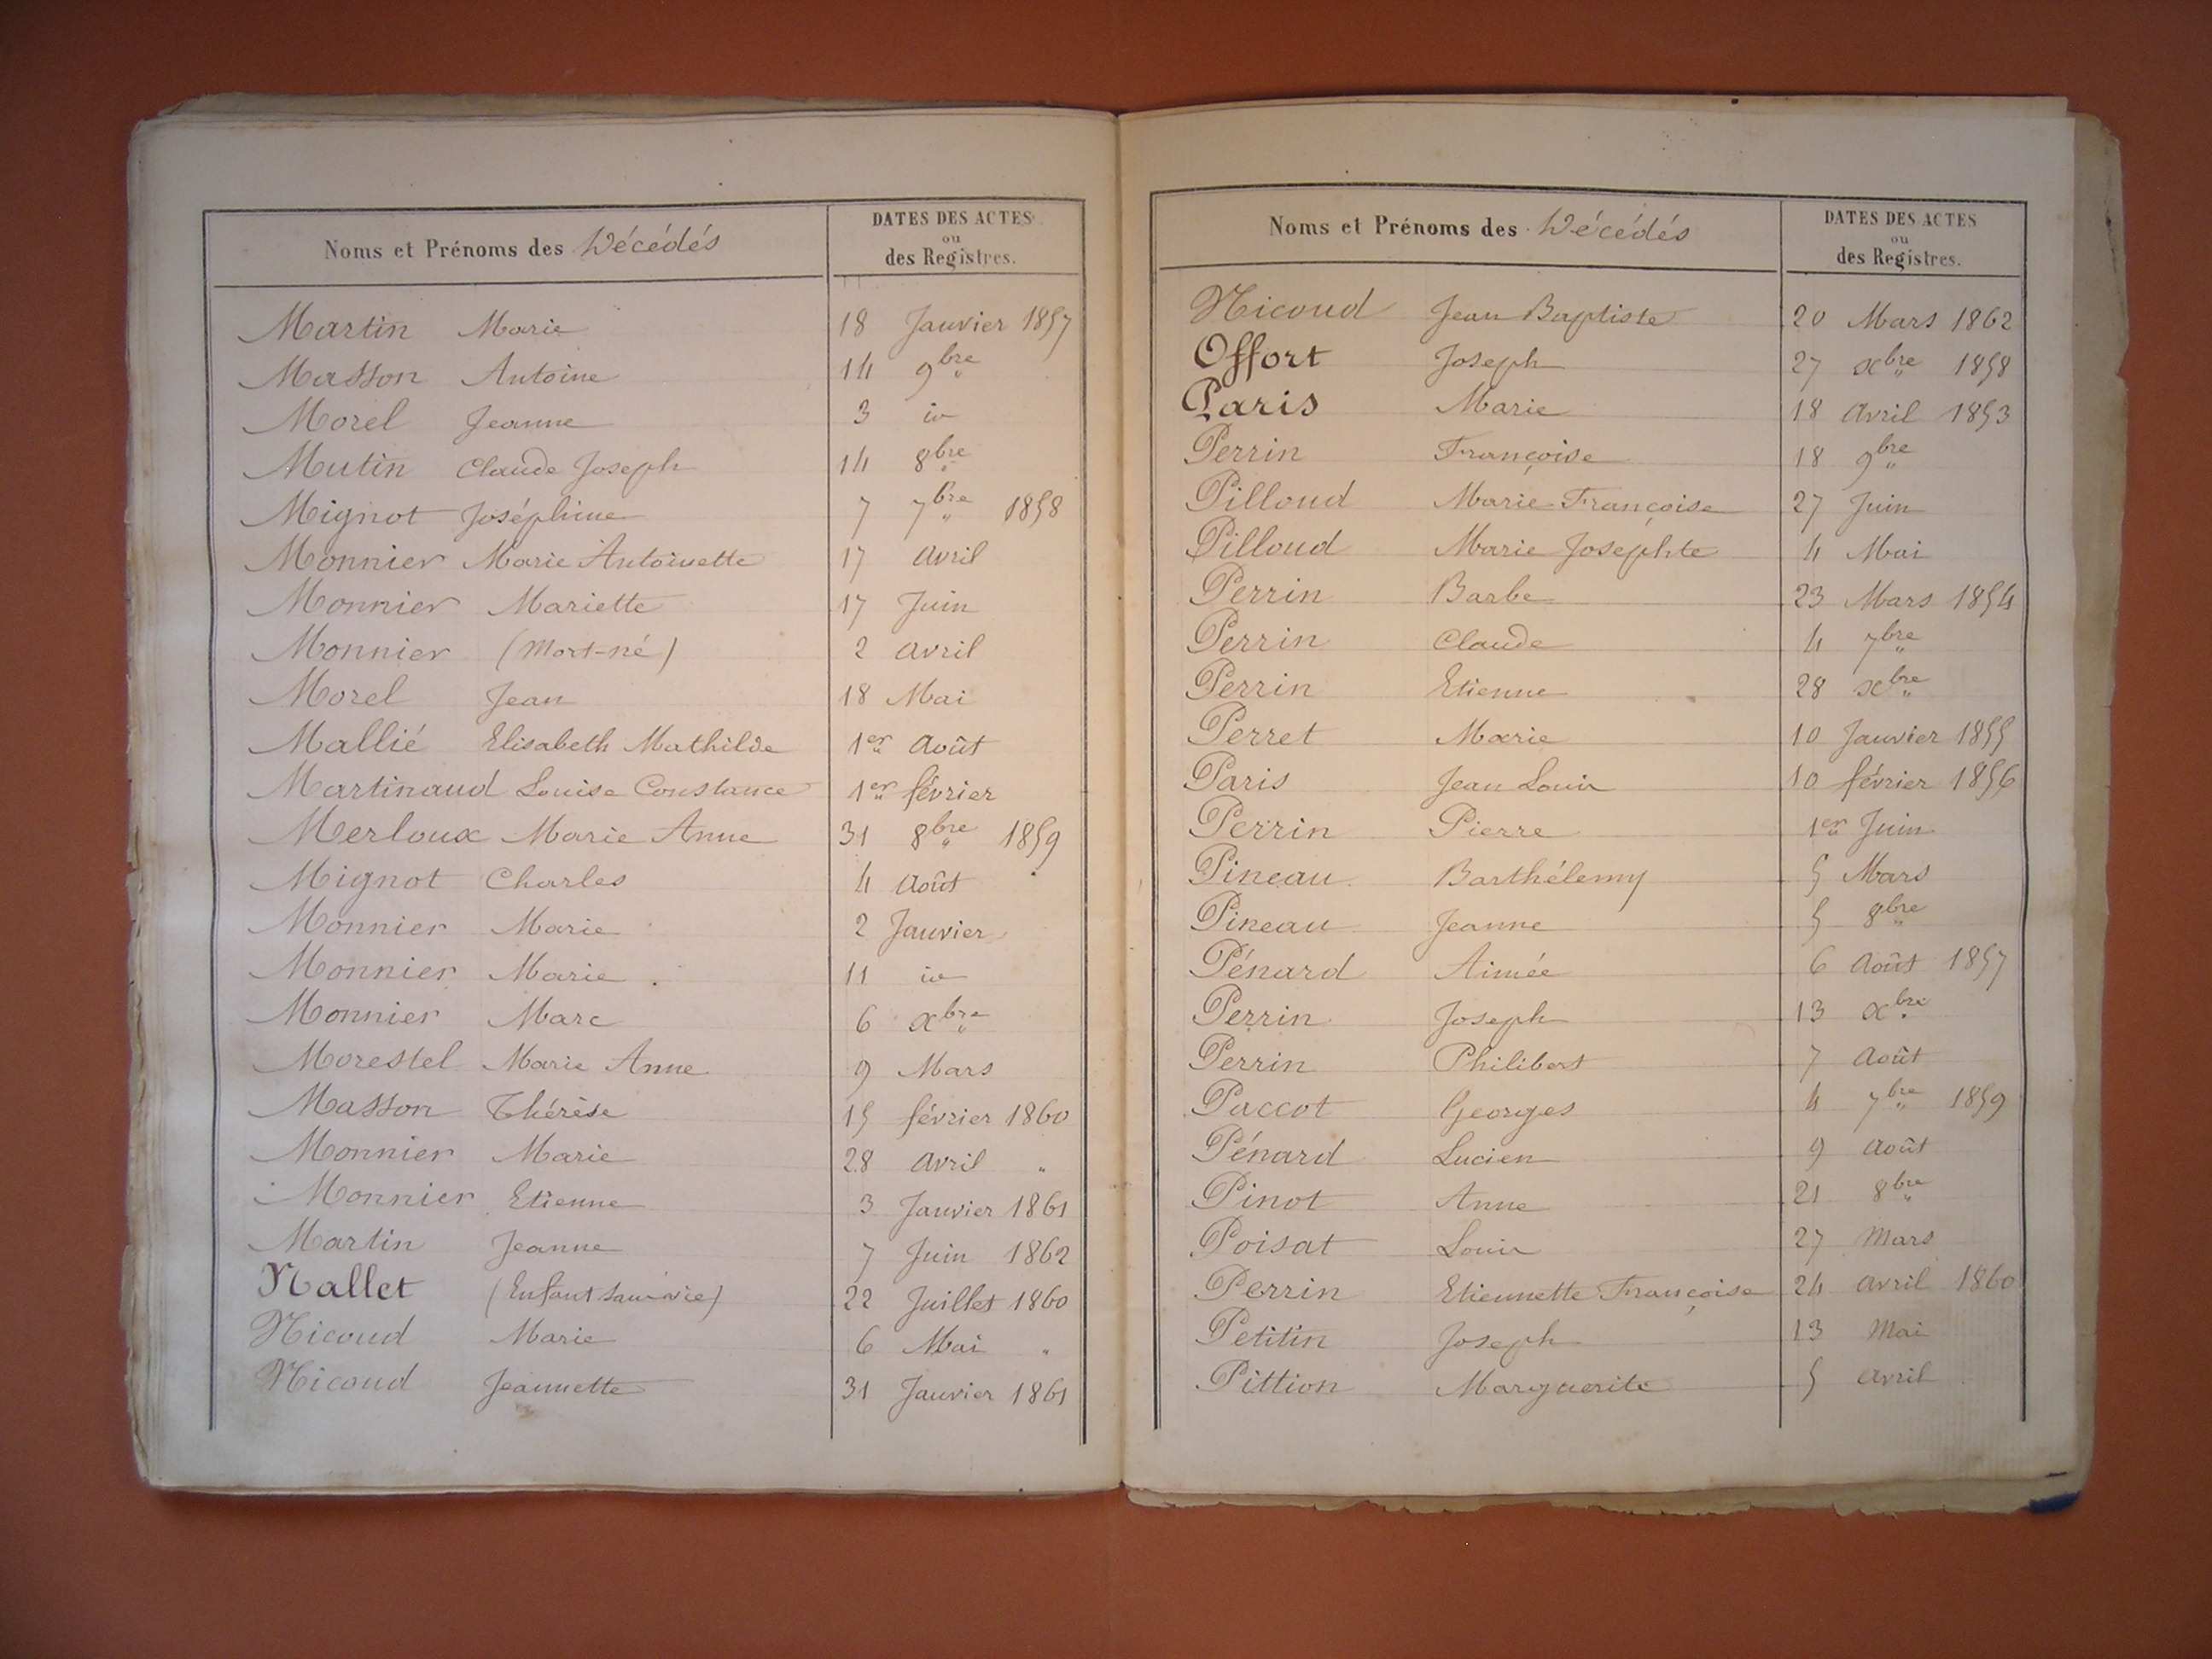 Noms et Prénoms des Décédés
DATES DES ACTES
ou
des Registres.
Martin Marie 18 Janvier 1857
Masson Antoine 14 9bre "
Morel Jeanne 3 id
Mutin Claude Joseph 14 8bre "
Mignot Joséphine 7 7bre " 1858
Monnier Marie Antoinette 17 avril
Monnier Mariette 17 Juin
Monnier (Mort-né) 2 avril
Morel Jean 18 Mai
Mallié Elisabeth Mathilde 1er août
Martinaud Louise Constance 1er février
Merloux Marie Anne 31 8bre " 1859
Mignot Charles 4 août
Monnier Marie 2 Janvier
Monnier Marie 11 id
Monnier Marc 6 xbre "
Morestel Marie Anne 9 Mars
Masson Thérèse 15 février 1860
Monnier Marie 28 avril "
Monnier Etienne 3 Janvier 1861
Martin Jeanne 7 Juin 1862
Nallet (Enfant sans vie) 22 Juillet 1860
Nicoud Marie 6 Mai "
Nicoud Jeannette 31 Janvier 1861
Noms et Prénoms des Décédés
DATES DES ACTES
ou
des Registres.
Nicoud Jean Baptiste 20 Mars 1862
Offort Joseph 27 xbre " 1858
Paris Marie 18 avril 1853
Perrin Françoise 18 9bre "
Pilloud Marie Françoise 27 Juin
Pilloud Marie Josephte 4 Mai
Perrin Barbe 23 Mars 1854
Perrin Claude 4 7bre "
Perrin Etienne 28 xbre "
Perret Marie 10 Janvier 1855
Paris Jean Louis 10 février 1856
Perrin Pierre 1er Juin
Pineau Barthélemy 5 Mars
Pineau Jeanne 5 8bre "
Pénard Aimée 6 août 1857
Perrin Joseph 13 xbre "
Perrin Philibert 7 août
Paccot Georges 4 7bre " 1859
Pénard Lucien 9 août
Pinot Anne 21 8bre "
Poisat Louis 27 Mars
Perrin Etiennette Françoise 24 avril 1860
Petitin Joseph 13 Mai
Pittion Marguerite 5 avril